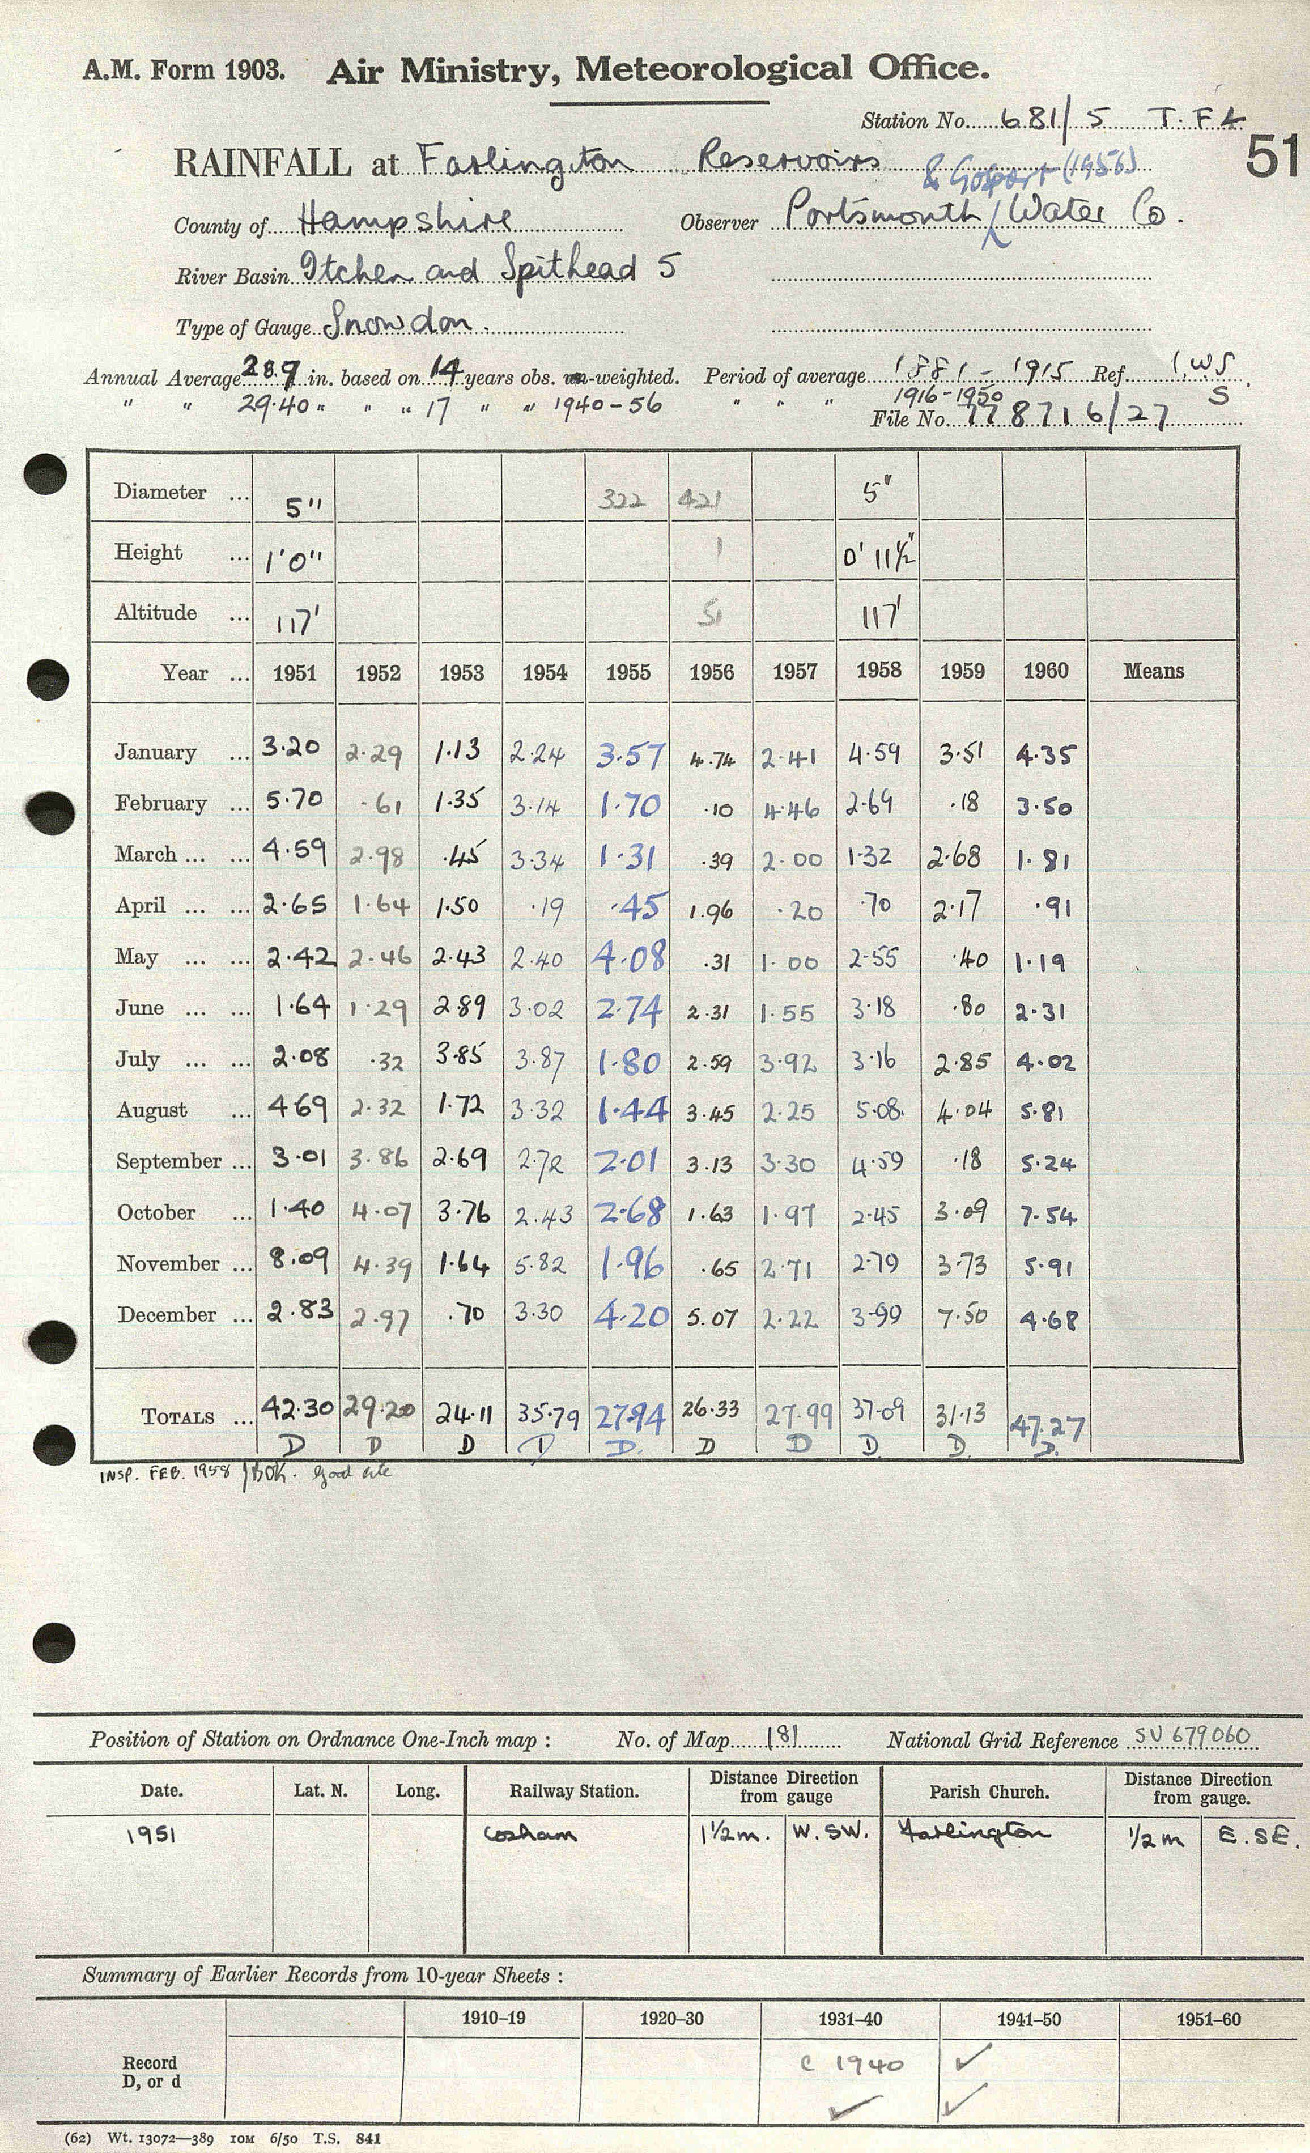 A.M. Form 1903. Air Ministry, Meteorological Office.
Station No. 681/5 T.F4
51
RAINFALL at Farlington Reservoirs
& Gosport (1956)
County of Hampshire Observer Portsmouth Water Co.
River Basin Itchen and Spithead 5
Type of Gauge Snowdon.
Annual Average 28.9 in. based on 14 years obs. un-weighted. Period of average 1881 - 1915 Ref. I.W.S
" " 29.40 " " " 17 " " 1940-56 " " " 1916-1950 S
File No. 778716/27
Diameter ... 5" 322 421 5"
Height ... 1'0" 1 0' 11½"
Altitude ... 117' 51 117'
Year ... 1951 1952 1953 1954 1955 1956 1957 1958 1959 1960 Means
January ... 3.20 2.29 1.13 2.24 3.57 4.74 2.41 4.59 3.51 4.35
February ... 5.70 .61 1.35 3.14 1.70 .10 4.46 2.69 .18 3.50
March ... ... 4.59 2.98 .45 3.34 1.31 .39 2.00 1.32 2.68 1.81
April ... ... 2.65 1.64 1.50 .19 .45 1.96 .20 .70 2.17 .91
May ... ... 2.42 2.46 2.43 2.40 4.08 .31 1.00 2.55 .40 1.19
June ... ... 1.64 1.29 2.89 3.02 2.74 2.31 1.55 3.18 .80 2.31
July ... ... 2.08 .32 3.85 3.87 1.80 2.59 3.92 3.16 2.85 4.02
August ... 4.69 2.32 1.72 3.32 1.44 3.45 2.25 5.08 4.04 5.81
September ... 3.01 3.86 2.69 2.72 2.01 3.13 3.30 4.59 .18 5.24
October ... 1.40 4.07 3.76 2.43 2.68 1.63 1.97 2.45 3.09 7.54
November ... 8.09 4.39 1.64 5.82 1.96 .65 2.71 2.79 3.73 5.91
December ... 2.83 2.97 .70 3.30 4.20 5.07 2.22 3.99 7.50 4.68
TOTALS ... 42.30 29.20 24.11 35.79 27.94 26.33 27.99 37.09 31.13 47.27
D D D D D. D D D. D. D.
INSP. FEB. 1958 good site
Position of Station on Ordnance One-Inch map : No. of Map 181 National Grid Reference SU 679060
Date. Lat. N. Long. Railway Station. Distance Direction from gauge Parish Church. Distance Direction from gauge.
1951 Cosham 1½m. W.SW. Farlington ½m E.SE.
Summary of Earlier Records from 10-year Sheets :
1910–19 1920–30 1931–40 1941–50 1951–60
Record D, or d c 1940 ✓
✓ ✓
(62) Wt. 13072—389 10M 6/50 T.S. 841